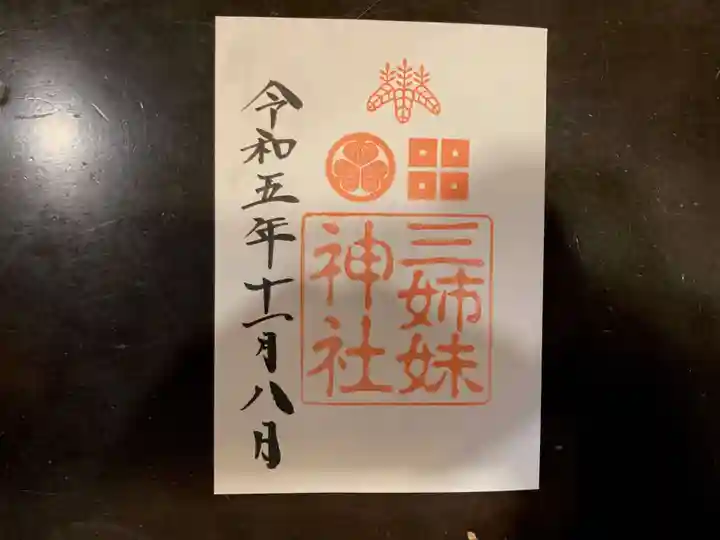 三姉妹
神社
令和五年十一月八日